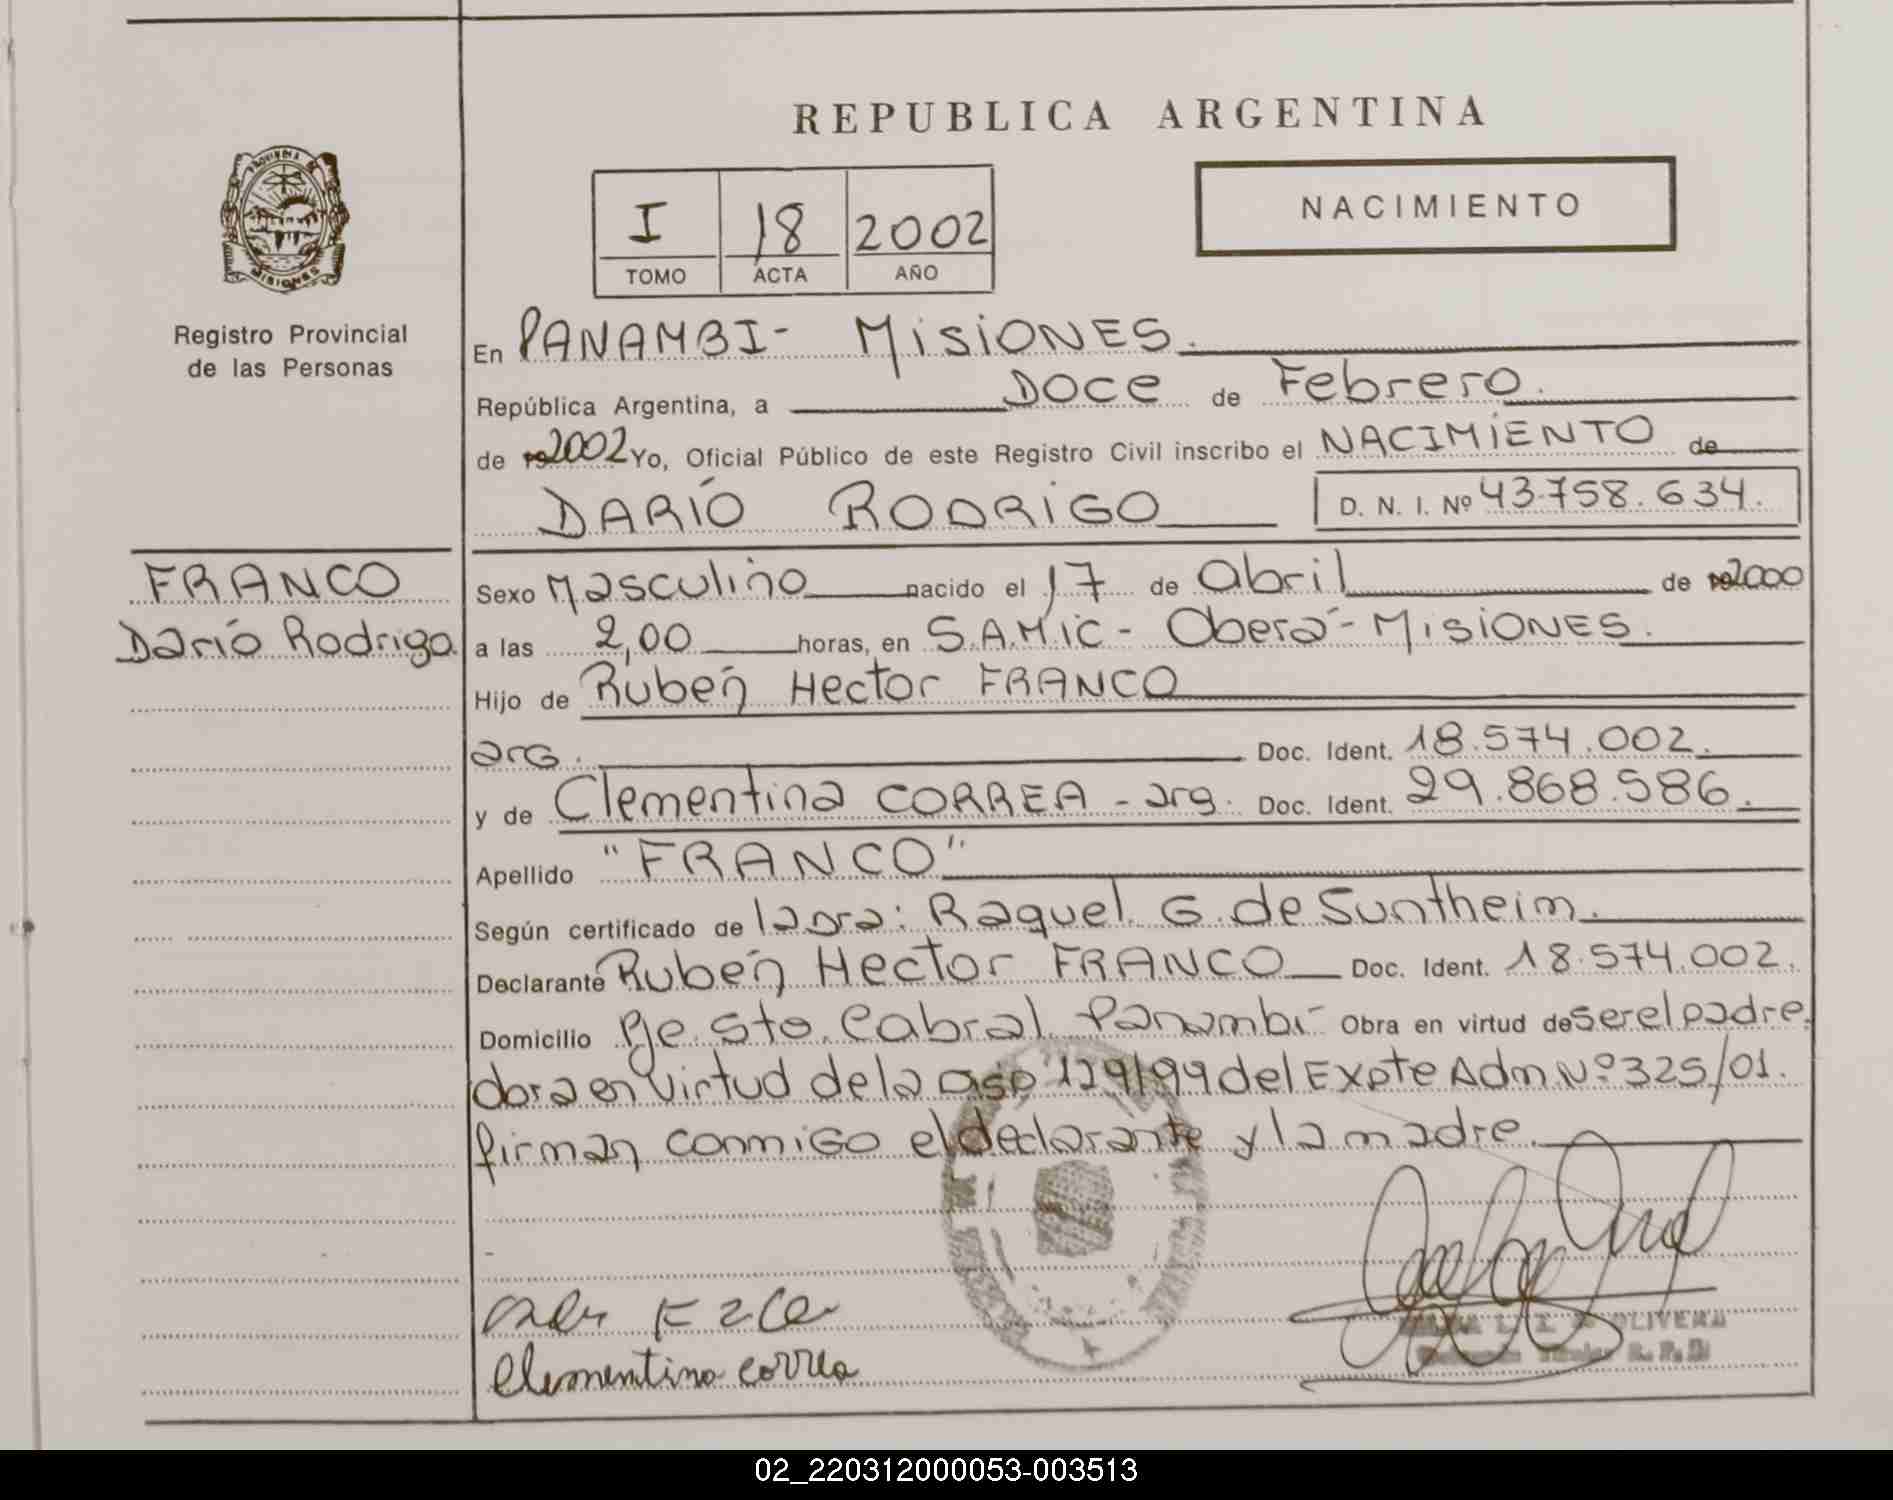 REPUBLICA ARGENTINA
PROVINCIA DE
MISIONES
Registro Provincial
de las Personas
I 18 2002
TOMO ACTA AÑO
NACIMIENTO
En PANAMBI- MISIONES.
República Argentina, a DOCE de Febrero.
de 192002 Yo, Oficial Público de este Registro Civil inscribo el NACIMIENTO de
DARIO RODRIGO D. N. I. Nº 43.758.634.
FRANCO
Dario Rodrigo.
Sexo Masculino nacido el 17 de abril de 192000
a las 2,00 horas, en S.A.M.IC - Oberá - MISIONES.
Hijo de Rubén Hector FRANCO
arg. Doc. Ident. 18.574.002.
y de Clementina CORREA - arg. Doc. Ident. 29.868.586.
Apellido "FRANCO"
Según certificado de la Dra: Raquel G. de Suntheim.
Declarante Rubén Hector FRANCO Doc. Ident. 18.574.002.
Domicilio Pje Sto. Cabral Panambi- Obra en virtud de ser el padre.
dora en virtud de la 129/99 del Expte Adm Nº 325/01.
firman conmigo el declarante y la madre.
Clementina correa
OLIVERA
02_220312000053-003513